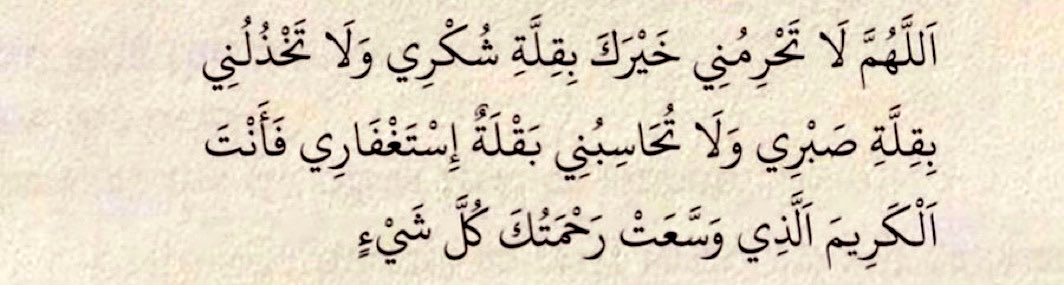 اَللَّهُمَّ لَا تَحْرِمُنِي خَيْرَكَ بِقِلَّةِ شُكْرِي وَلَا تَخْذُلُنِي
بِقِلَّةِ صَبْرِي وَلَا تُحَاسِبُنِي بَقْلَةٌ إِسْتَغْفَارِي فَأَنْتَ
اَلْكَرِيمَ اَلَّذِي وَسَّعَتْ رَحْمَتُكَ كُلَّ شَيْءٍ